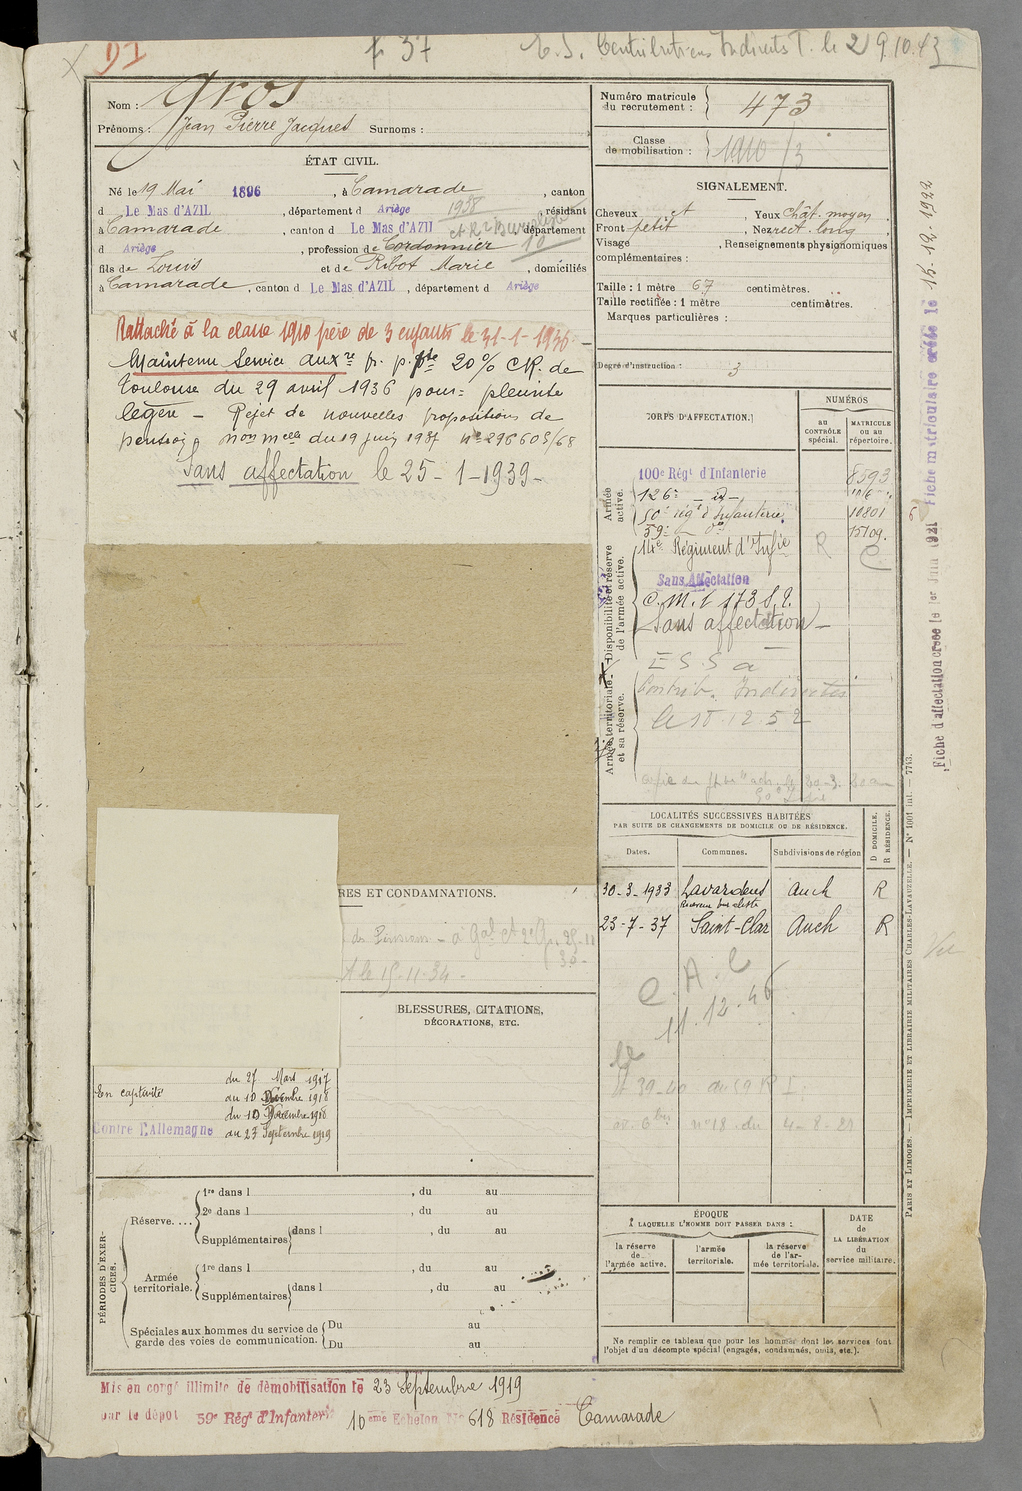 91
F 37
E.S. Contributions Indirects T. le 29.10.43
Nom : Gros
Prénoms : Jean Pierre Jacques Surnoms :
Numéro matricule du recrutement : 473
Classe de mobilisation : 1910/3
ÉTAT CIVIL.
Né le 19 Mai 1896, à Camarade, canton
d Le Mas d'AZIL, département d Ariège 1938, résidant
à Camarade, canton d Le Mas d'AZIL et R2 Buraliste département
d Ariège, profession de Cordonnier 10
fils de Louis et de Ribot Marie, domiciliés
à Camarade, canton d Le Mas d'AZIL, département d Ariège
Rattaché à la classe 1910 père de 3 enfants le 31-1-1936 -
Maintenu Service auxre fr. p. pte 20% CR. de
Toulouse du 29 avril 1936 pour= pleurite
légère - Rejet de nouvelles propositions de
pension nonmelle du 19 juin 1937 n° 296603/68
Sans affectation le 25-1-1939-
SIGNALEMENT.
Cheveux ct, Yeux chât. moyen
Front petit, Nez rect. long
Visage , Renseignements physionomiques
complémentaires :
Taille : 1 mètre 67 centimètres.
Taille rectifiée : 1 mètre centimètres.
Marques particulières :
Degré d'instruction : 3
CORPS D'AFFECTATION.
NUMÉROS
AU CONTRÔLE spécial.
MATRICULE ou au répertoire.
Armée active.
100e Régt d'Infanterie 8593
126e - d° -
50e rég t d'Infanterie 10801
59e d° 15109.
Disponibilité et réserve de l'armée active.
14e Régiment d'Infie R C
Sans Affectation
C.M.I 173 S.R.
Sans affectation -
Armée territoriale et sa réserve.
E S S a
Contrib. Indirectes
le 10.12.52
LOCALITÉS SUCCESSIVES HABITÉES
PAR SUITE DE CHANGEMENTS DE DOMICILE OU DE RÉSIDENCE.
D DOMICILE.
R RÉSIDENCE.
Dates. Communes. Subdivisions de région
30-3-1933 Lavardens Auch R
Receveur buraliste
23-7-37 Saint-Clar Auch R
C.A.C
11.12.46
RES ET CONDAMNATIONS.
et le 15-11-34-
BLESSURES, CITATIONS,
DÉCORATIONS, ETC.
En captivité
du 27 Mars 1917
au 10 Décembre 1918
Contre l'Allemagne
du 10 Décembre 1918
au 23 Septembre 1919
PÉRIODES D'EXERCICES.
Réserve....
1re dans l , du au
2e dans l , du au
Supplémentaires dans l , du au
Armée territoriale.
1re dans l , du au
Supplémentaires dans l , du au
Spéciales aux hommes du service de garde des voies de communication.
Du au
Du au
ÉPOQUE
À LAQUELLE L'HOMME DOIT PASSER DANS :
la réserve de l'armée active.
l'armée territoriale.
la réserve de l'armée territoriale.
DATE DE LA LIBÉRATION du service militaire.
Ne remplir ce tableau que pour les hommes dont les services font
l'objet d'un décompte spécial (engagés, condamnés, omis, etc.).
Mis en congé illimité de démobilisation le 23 Septembre 1919
par le dépot 59e Régt d'Infanterie 10eme Echelon N° 618 Résidence Camarade
Fiche d'affectation créée le 1er Juin 1921 Fiche matriculaire créée le 15.12.1922
PARIS ET LIMOGES. — IMPRIMERIE ET LIBRAIRIE MILITAIRES CHARLES-LAVAUZELLE. — N° 1001 Int. — 7713.
Vu